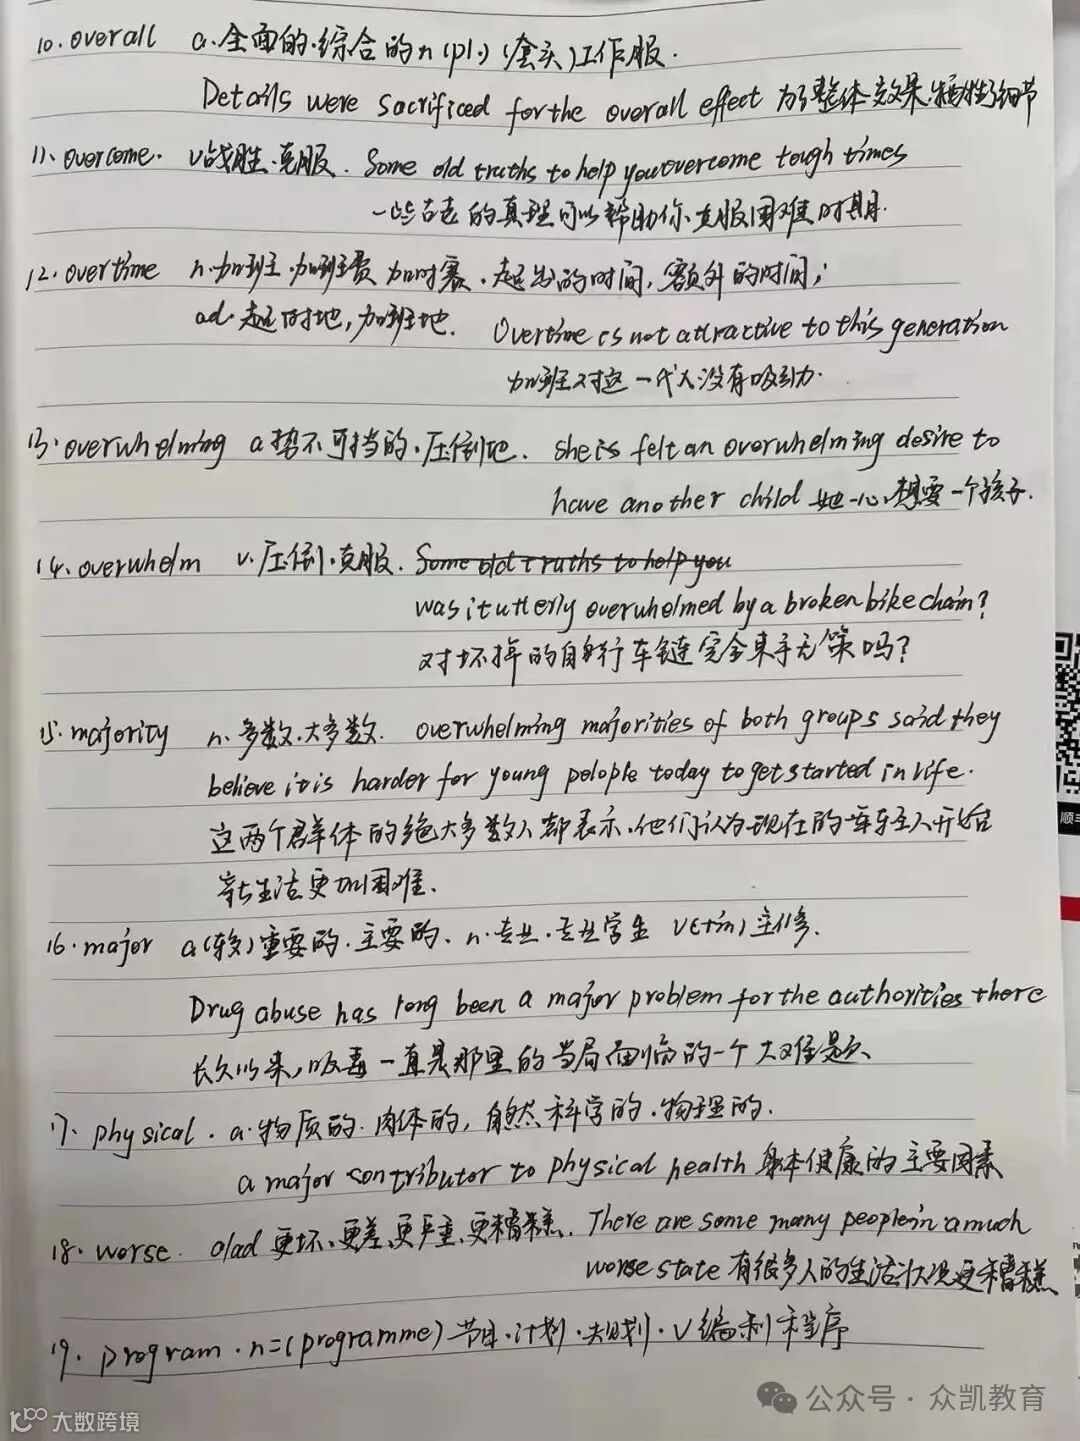 10. overall a.全面的.综合的 n(pl.)(套头)工作服.
Details were sacrificed for the overall effect 为了整体效果.牺牲了细节
11. overcome. v战胜.克服. Some old truths to help you overcome tough times
一些古老的真理可以帮助你克服困难时期.
12. overtime n.加班.加班费 加时赛.超出的时间,额外的时间;
ad.超时地,加班地. Overtime is not attractive to this generation
加班对这一代人没有吸引力.
13. overwhelming a势不可挡的.压倒地. She is felt an overwhelming desire to
have another child 她一心想要一个孩子.
14. overwhelm v.压倒.克服. Some old truths to help you
was it utterly overwhelmed by a broken bike chain?
对坏掉的自行车链完全束手无策吗?
15. majority n.多数.大多数. overwhelming majorities of both groups said they
believe it is harder for young pelople today to get started in life.
这两个群体的绝大多数人都表示.他们认为现在的年轻人开始
新生活更加困难.
16. major a(较)重要的.主要的. n.专业.专业学生 v(+in)主修.
Drug abuse has long been a major problem for the authorities there
长久以来,吸毒一直是那里的当局面临的一个大难题.
17. physical. a.物质的.肉体的,自然科学的.物理的.
a major contributor to physical health 身体健康的主要因素
18. worse. a/ad 更坏、更差、更严重、更糟糕. There are some many people in a much
worse state 有很多人的生活状况更糟糕
19. program. n=(programme)节目.计划.规划. v编制程序
顺丰
公众号·众凯教育
大数跨境